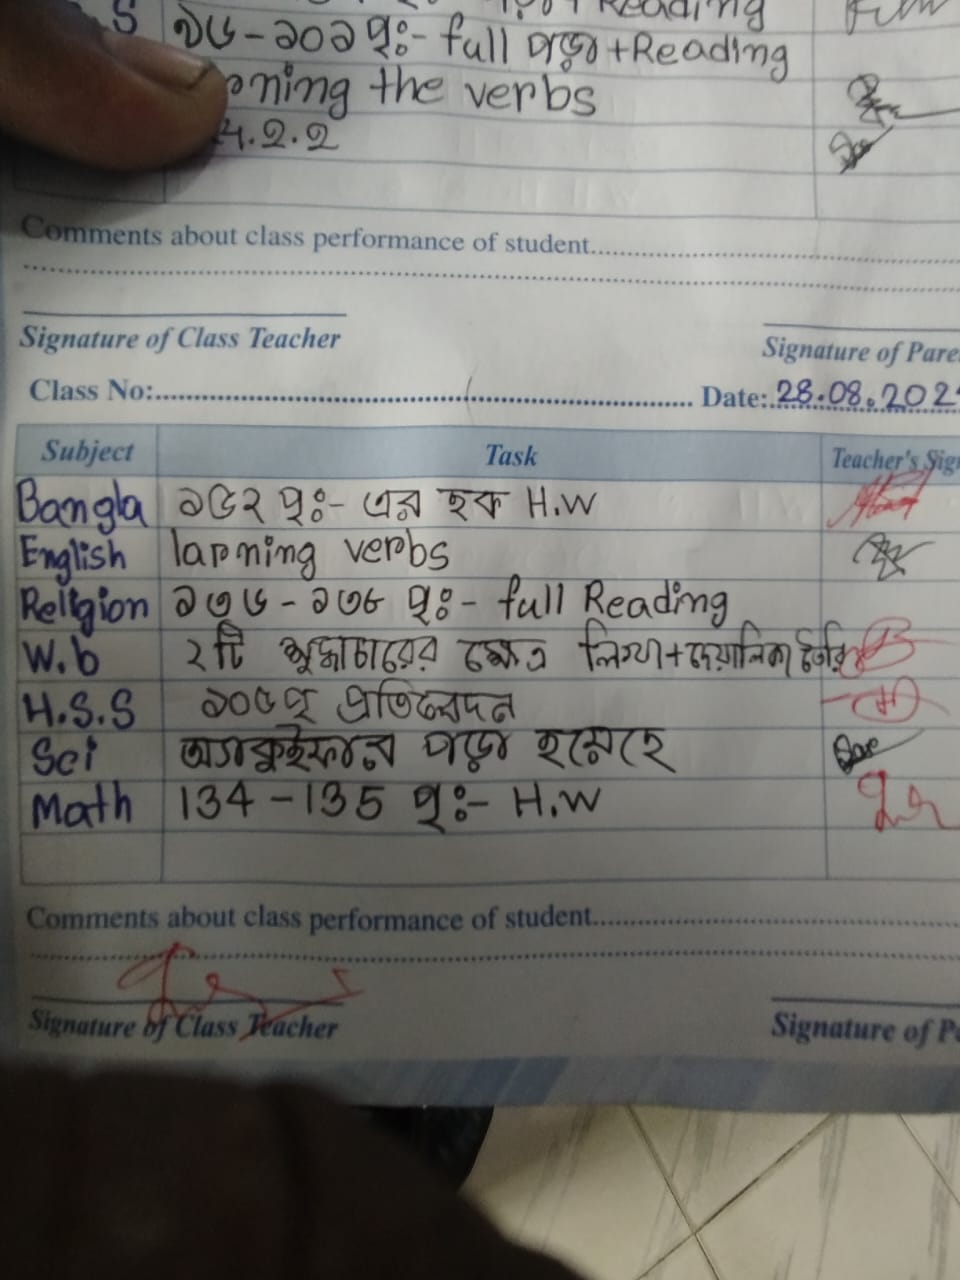 Reading
৯৬-১০১ পৃ:- full পড়া+Reading
the verbs
4.2.2
Comments about class performance of student
Signature of Class Teacher
Signature of
Class No: Date: 28.08.202
Subject Task Teacher's
Bangla ১৫২ পৃ:- এর ছক H.W
English larning verbs
Religion ১৩৬-১৩৮ পৃ:- full Reading
W.b ২টি শুদ্ধাচারের ক্ষেত্র লিখা+দেয়ালিকা তৈরি
H.S.S ১০৫পৃ প্রতিবেদন
Sci অ্যাকুইফার পড়া হয়েছে
Math 134-135 পৃ:- H.W
Comments about class performance of student
Signature of Class Teacher
Signature of